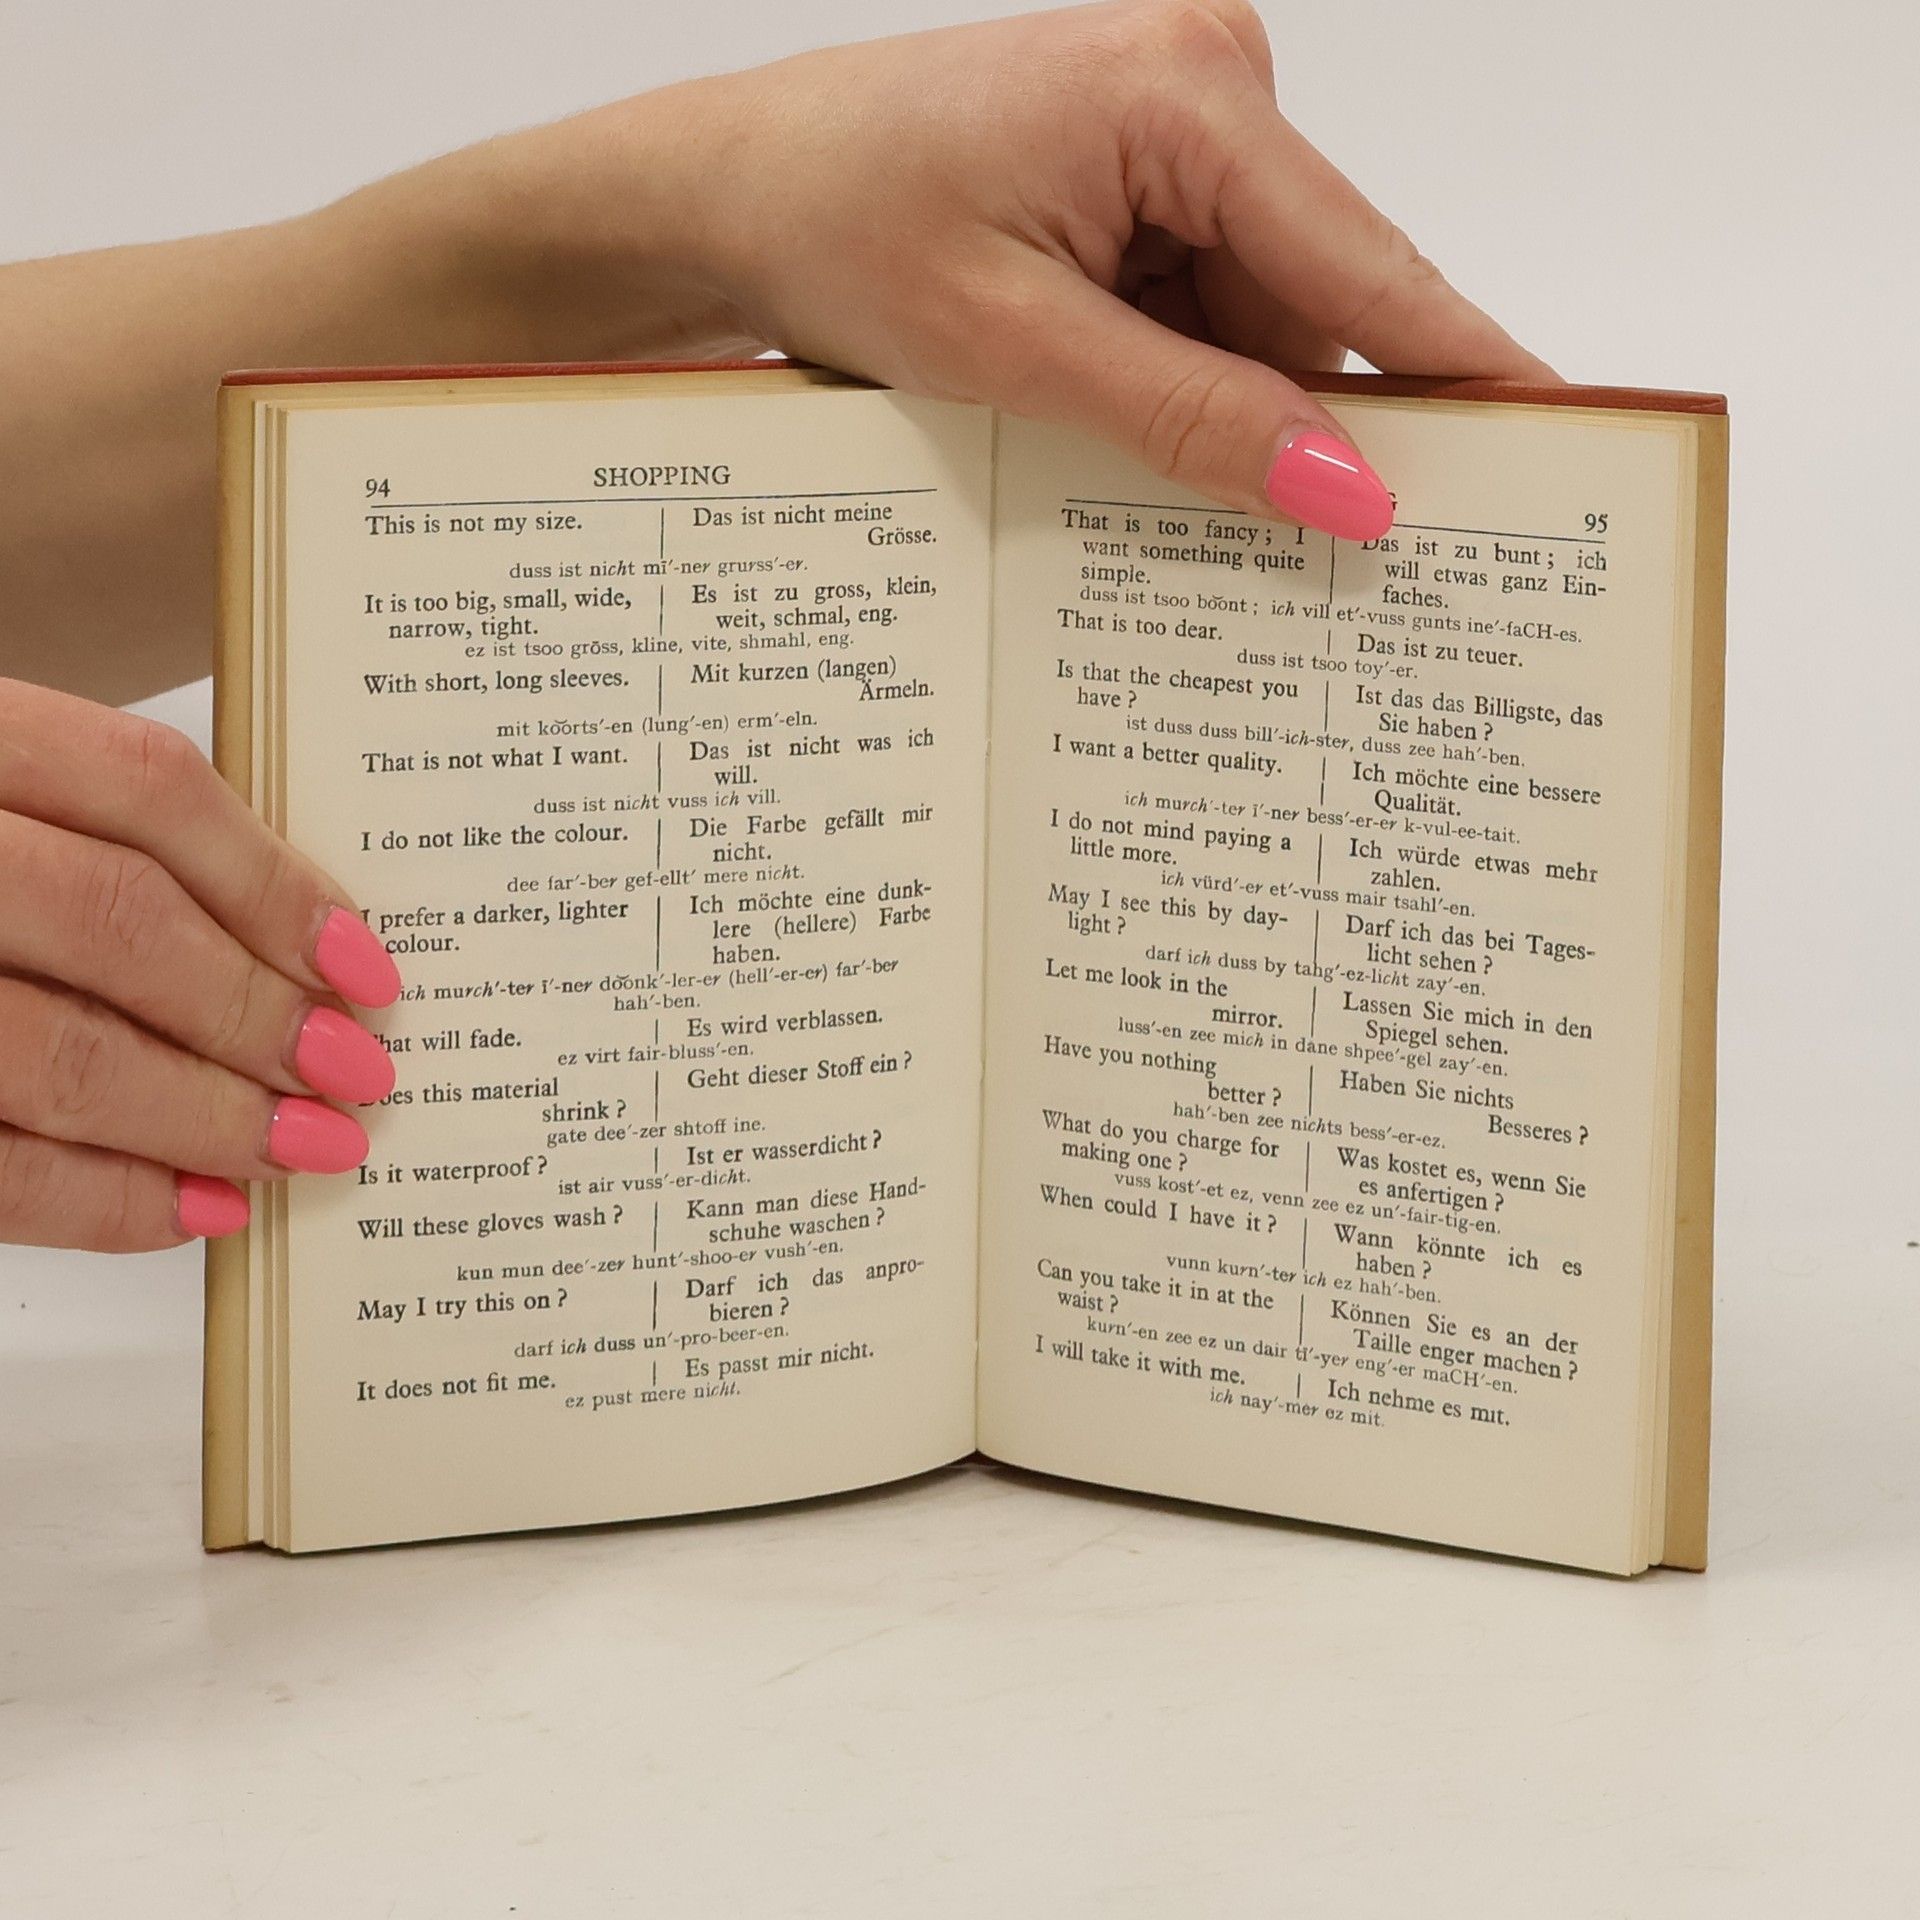 94 SHOPPING
This is not my size. Das ist nicht meine
Grösse.
duss ist nicht mī′-ner grurss′-er.
It is too big, small, wide, Es ist zu gross, klein,
narrow, tight. weit, schmal, eng.
ez ist tsoo grōss, kline, vite, shmahl, eng.
With short, long sleeves. Mit kurzen (langen)
Ärmeln.
mit ko͝orts′-en (lung′-en) erm′-eln.
That is not what I want. Das ist nicht was ich
will.
duss ist nicht vuss ich vill.
I do not like the colour. Die Farbe gefällt mir
nicht.
dee far′-ber gef-ellt′ mere nicht.
I prefer a darker, lighter Ich möchte eine dunk-
colour. lere (hellere) Farbe
haben.
ich murch′-ter ī′-ner do͝onk′-ler-er (hell′-er-er) far′-ber
hah′-ben.
hat will fade. Es wird verblassen.
ez virt fair-bluss′-en.
oes this material Geht dieser Stoff ein ?
shrink ?
gate dee′-zer shtoff ine.
Is it waterproof ? Ist er wasserdicht ?
ist air vuss′-er-dicht.
Will these gloves wash ? Kann man diese Hand-
schuhe waschen ?
kun mun dee′-zer hunt′-shoo-er vush′-en.
May I try this on ? Darf ich das anpro-
bieren ?
darf ich duss un′-pro-beer-en.
It does not fit me. Es passt mir nicht.
ez pust mere nicht.
G 95
That is too fancy ; I Das ist zu bunt ; ich
want something quite will etwas ganz Ein-
simple. faches.
duss ist tsoo bo͝ont ; ich vill et′-vuss gunts ine′-faCH-es.
That is too dear. Das ist zu teuer.
duss ist tsoo toy′-er.
Is that the cheapest you Ist das das Billigste, das
have ? Sie haben ?
ist duss duss bill′-ich-ster, duss zee hah′-ben.
I want a better quality. Ich möchte eine bessere
Qualität.
ich murch′-ter ī′-ner bess′-er-er k-vul-ee-tait.
I do not mind paying a Ich würde etwas mehr
little more. zahlen.
ich vürd′-er et′-vuss mair tsahl′-en.
May I see this by day- Darf ich das bei Tages-
light ? licht sehen ?
darf ich duss by tahg′-ez-licht zay′-en.
Let me look in the Lassen Sie mich in den
mirror. Spiegel sehen.
luss′-en zee mich in dane shpee′-gel zay′-en.
Have you nothing Haben Sie nichts
better ? Besseres ?
hah′-ben zee nichts bess′-er-ez.
What do you charge for Was kostet es, wenn Sie
making one ? es anfertigen ?
vuss kost′-et ez, venn zee ez un′-fair-tig-en.
When could I have it ? Wann könnte ich es
haben ?
vunn kurn′-ter ich ez hah′-ben.
Can you take it in at the Können Sie es an der
waist ? Taille enger machen ?
kurn′-en zee ez un dair tī′-yer eng′-er maCH′-en.
I will take it with me. Ich nehme es mit.
ich nay′-mer ez mit.